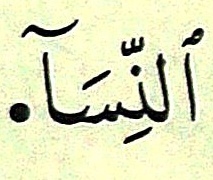 ٱلنِّسَآ.